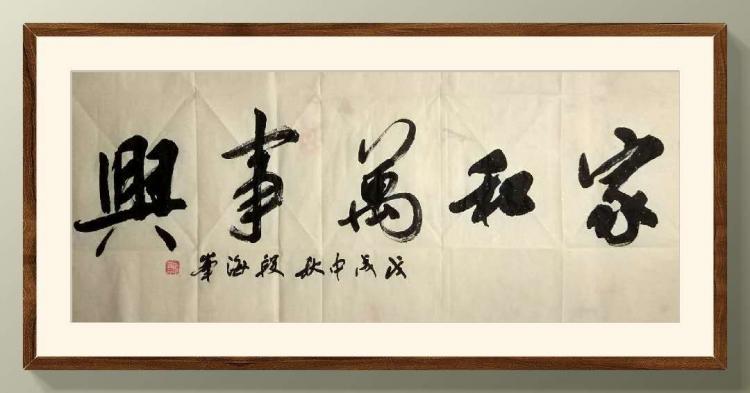 家和萬事興
戊戌中秋 段海峯